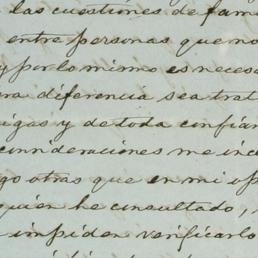 las cuestiones de fam
entre personas que no
y por lo mismo es neces
ra diferencia sea trat
ugas y de toda confian
consideraciones me inc
go otras que en mi op
quien he consultado,
impiden verificarlo